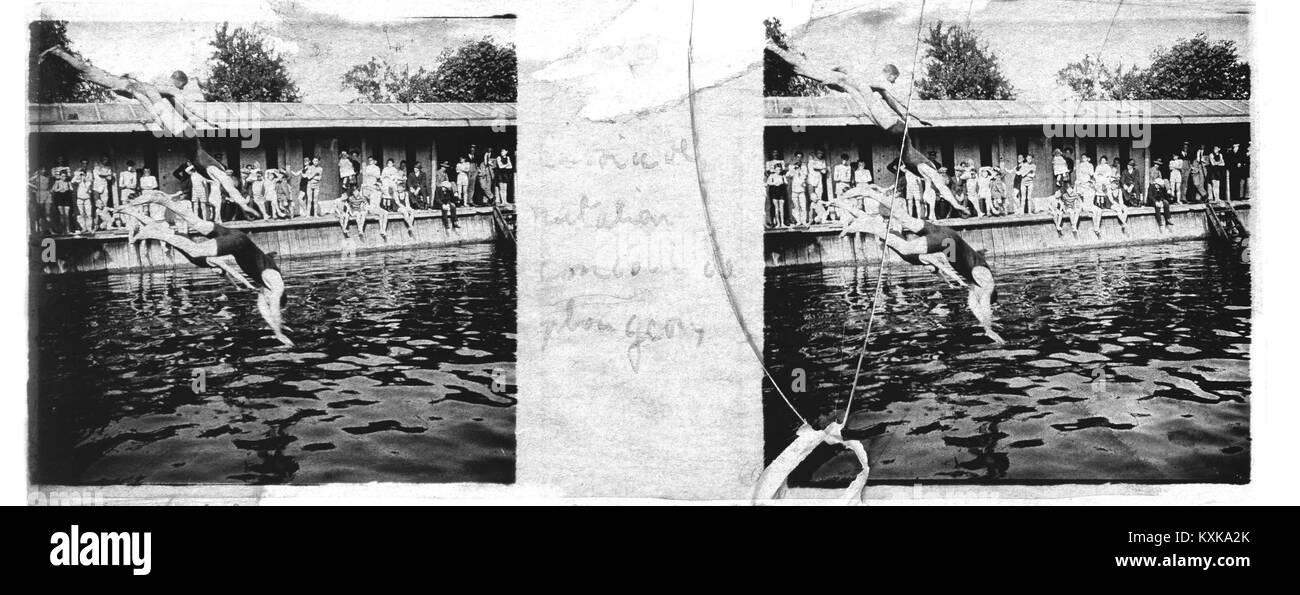 natation
concours de
plongeon
alamy
Image ID: KXKA2K
www.alamy.com